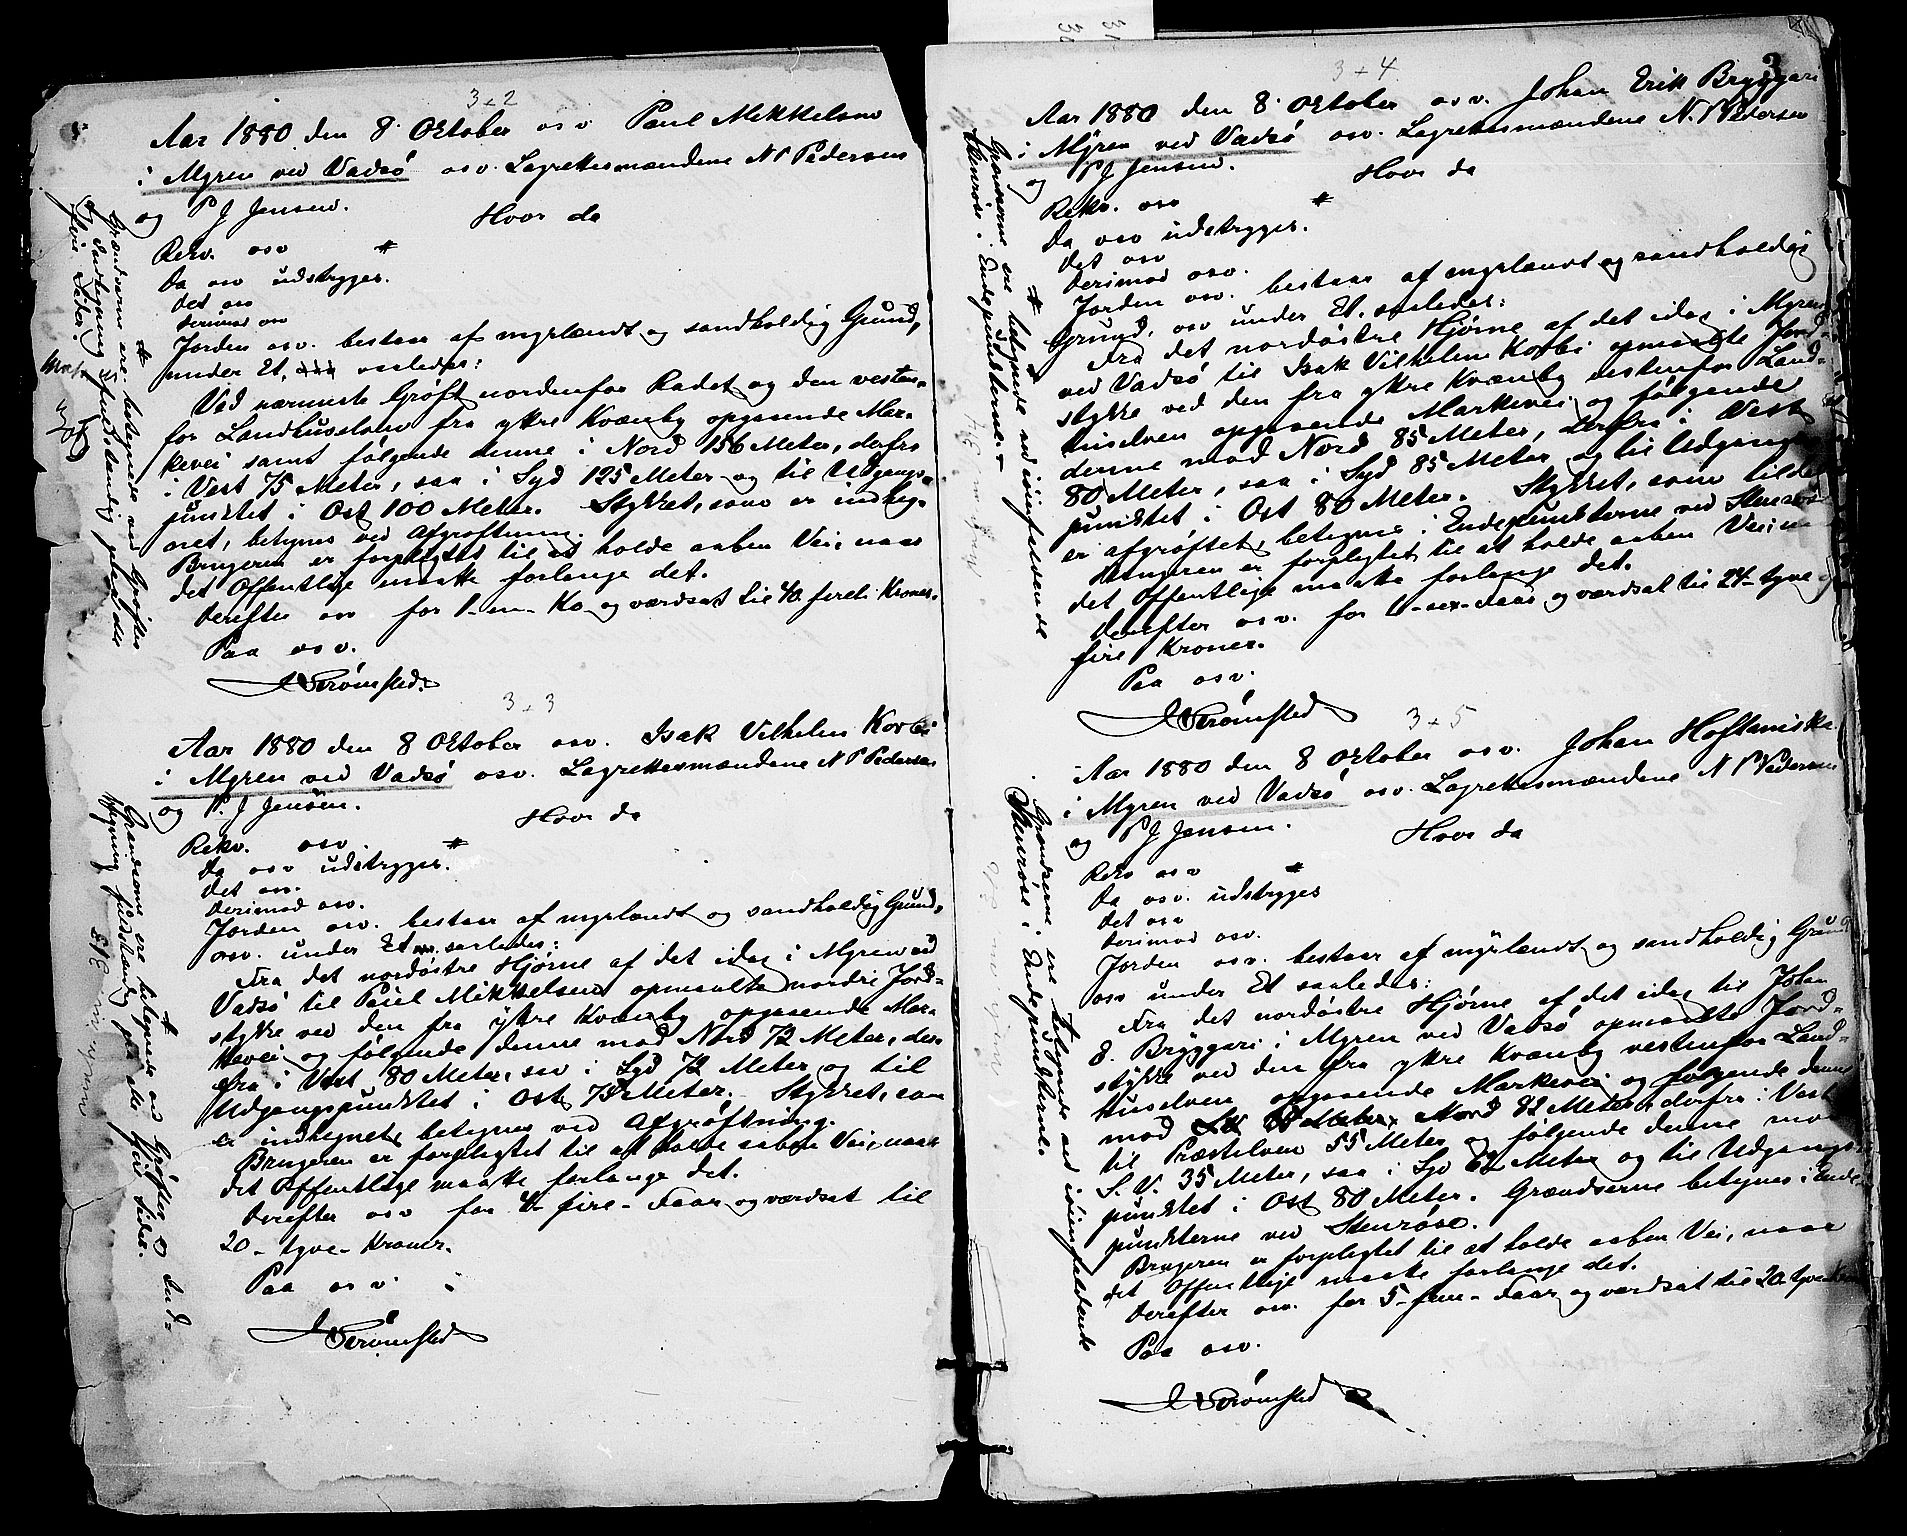 3+2
Aar 1880 den 8. Oktober osv Paul Mikkelsen
i Myren ved Vadsö osv. Lagrettesmændene N P Pedersen
og P J Jensen. Hvor da
Rekv. osv
Da osv udstryges. #
Det osv
Derimod osv
Jorden osv. bestaar af myrlændt og sandholdig Grund,
under Et, saaledes:
Ved nærmeste Gröft nordenfor Radet og den vesten-
for Landhuselven fra ytre Kvænby opgaaende Mar-
kevei samt følgende denne i Nord 156 Meter, derfra
i Vest 75 Meter, saa i Syd 125 Meter og til Udgangs-
punktet i Ost 100 Meter. Stykket, som er indheg-
net, betegnes ved Afgröftning.
Brugeren er forpligtet til at holde aaben Vei, naar
det Offentlige maatte forlange det.
Derefter osv for 1-en- Ko og værdsat til 40 firti Kroner.
Paa osv.
Strömsted
# Grændserne ere betegnede ved Gröfter
og Indhegning fuldstændig paa de
fire Sider.
3+3
Aar 1880 den 8 Oktober osv. Isak Vilhelm Korbi
i Myren ved Vadsö osv. Lagrettesmændene N P Pedersen
og P. J Jensen. Hvor da
Rekv. osv.
Da osv udstryges. #
Det osv.
Derimod osv.
Jorden osv. bestaar af myrlændt og sandholdig Grund,
osv. under Et saaledes:
Fra det nordöstre Hjörne af det idag i Myren ved
Vadsö til Paul Mikkelsen opmaalte nordre Jord-
stykke ved den fra ytre Kvænby opgaaende Mar-
kevei og følgende denne mod Nord 72 Meter, der-
fra i Vest 80 Meter, saa i Syd 72 Meter og til
Udgangspunktet i Ost 75 Meter. Stykket, som
er indhegnet, betegnes ved Afgröftning.
Brugeren er forpligtet til at holde aaben Vei, naar
det Offentlige maatte forlange det.
Derefter osv for 4- fire- Faar og værdsat til
20- tyve- Kroner.
Paa osv.
Strömsted
# Grændserne ere betegnede ved Gröfter og Ind-
hegning fuldstændig paa alle fire Sider.
3
3+4
Aar 1880 den 8. Oktober osv. Johan Erik Bryggari
i Myren ved Vadsö osv. Lagrettesmændene N. P Pedersen
og P J Jensen. Hvor da
Rekv. osv
Da osv udstryges. #
Det osv
Derimod osv.
Jorden osv. bestaar af myrlændt og sandholdig
Grund, osv under Et, saaledes:
Fra det nordöstre Hjörne af det idag i Myren
ved Vadsö til Isak Vilhelm Korbi opmaalte Jord-
stykke ved den fra ytre Kvænby vestenfor Land-
huselven opgaaende Markevei og følgende
denne mod Nord 85 Meter, derfra i Vest
80 Meter, saa i Syd 85 Meter og til Udgangs-
punktet i Ost 80 Meter. Stykket, som tildels
er afgröftet, betegnes i Endepunkterne ved Stenröse
Brugeren er forpligtet til at holde aaben Vei naar
det Offentlige maatte forlange det.
Derefter osv. for 6-sex-Faar og værdsat til 24-tyve og
fire Kroner.
Paa osv.
Strömsted
# Grændserne ere betegnede ved iöinefaldende
Stenröse i Endepunkterne.
3+5
Aar 1880 den 8 Oktober osv. Johan Hoffaniska
i Myren ved Vadsö osv. Lagrettesmændene N P Pedersen
og P J Jensen. Hvor da
Rekv osv
Da osv. udstryges #
Det osv
Derimod osv.
Jorden osv. bestaar af myrlændt og sandholdig Grund
osv under Et saaledes:
Fra det nordöstre Hjörne af det idag til Johan
E. Bryggari i Myren ved Vadsö opmaalte Jord-
stykke ved den fra ytre Kvænby vestenfor Land-
huselven opgaaende Markevei og følgende denne
mod Nord 82 Meter, derfra i Vest
til Præstelven 55 Meter og følgende denne mod
S. V. 35 Meter, saa i Syd 62 Meter og til Udgangs-
punktet i Ost 80 Meter. Grændserne betegnes i Ende-
punkterne ved Stenröse.
Brugeren er forpligtet til at holde aaben Vei, naar
det Offentlige maatte forlange det.
Derefter osv. for 5-fem- Faar og værdsat til 20 tyve Kroner
Paa osv.
Strömsted
# Grændserne ere betegnede ved iöinefaldende
Stenröse i Endepunkterne.